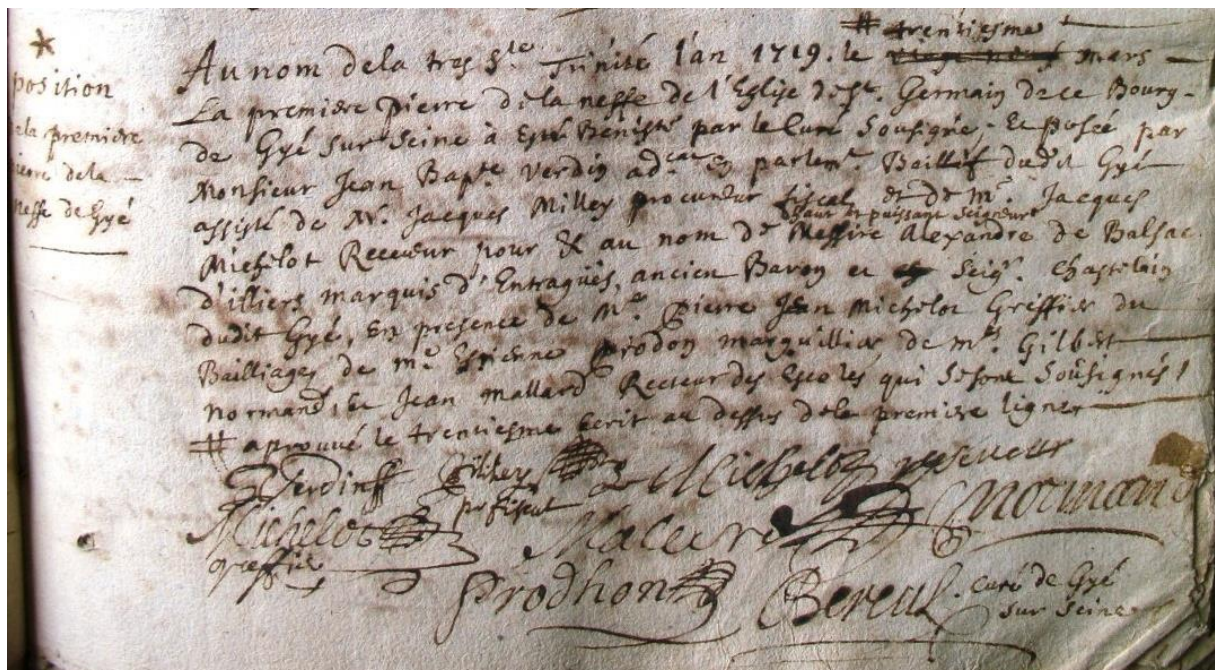 *
position
la première
pierre dela
neffe de Gyé
# trentiesme
Au nom dela tres Ste Trinité l'an 1719. le mars
La premiere pierre dela neffe de l'Eglise de St. Germain de ce Bourg
de Gyé sur Seine à esté Beniste par le Curé Sousigné. Et posée par
Monsieur Jean Bapte Verdin adcat en parlemt Baillif dudit Gyé
assisté de Me. Jacques Milley procureur fiscal et de Me. Jacques
haut et puissant seigneur
Michelot Receveur pour & au nom de Messire Alexandre de Balsac
d'illiers marquis d'Entragues, ancien Baron et Seigr. Chastelain
dudit Gyé, En presence de Me. Pierre Jean Michelot Greffier du
Bailliage, de me. Estienne Prodon marguillier de me. Gilbert
normand, et Jean mallard Recteur des Escoles qui se sont Sousignés /
# aprouvé le trentiesme ecrit au dessus dela premiere ligne
Verdin Milley Michelot receveur
pr fiscal
Michelot normand
greffier
Prodhon Bereul. curé de Gyé
sur Seine